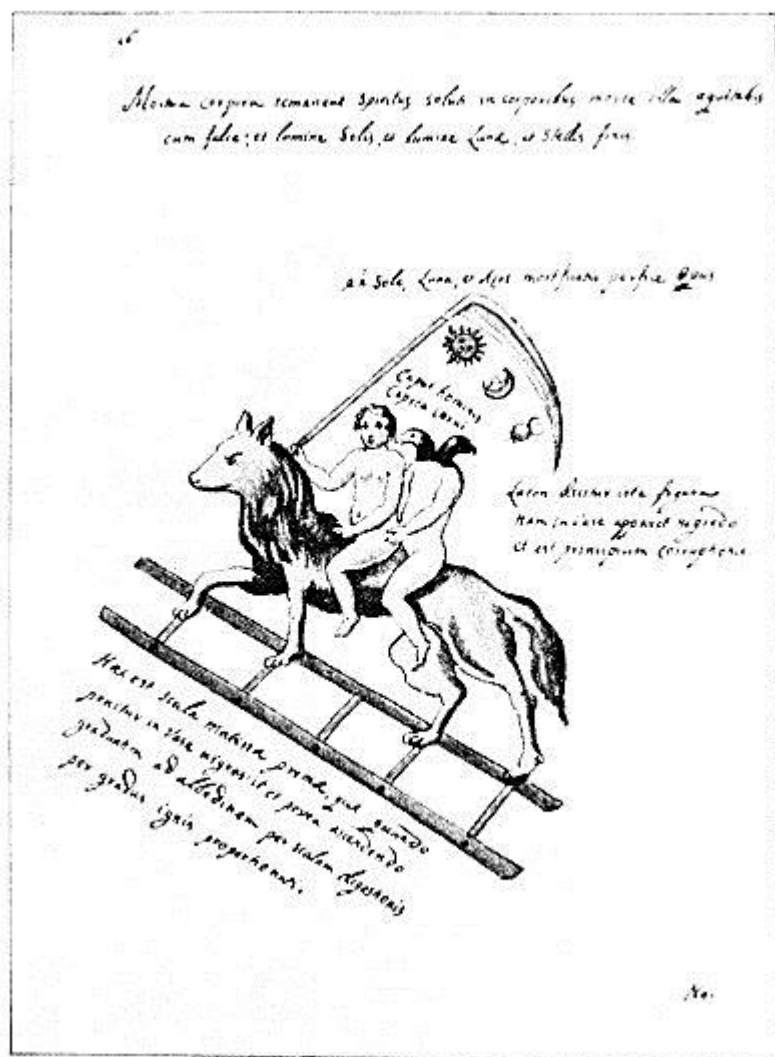 Mortua corpora remanent Spiritus soluti in corporibus morte illa equitabis
cum falce; et lumine Solis, et lumine Lunæ, et Stellis
Sole, Luna, et
Caput hominis
Capita corvi
Laton dicitur ista figura
Nam in vase apparet nigredo
Et est principium corruptionis
Hæc est scala prima, quæ quando
ponitur in vase nigrescit et postea ascendendo
gradatim ad albedinem per scalam digestionis
per gradus ignis